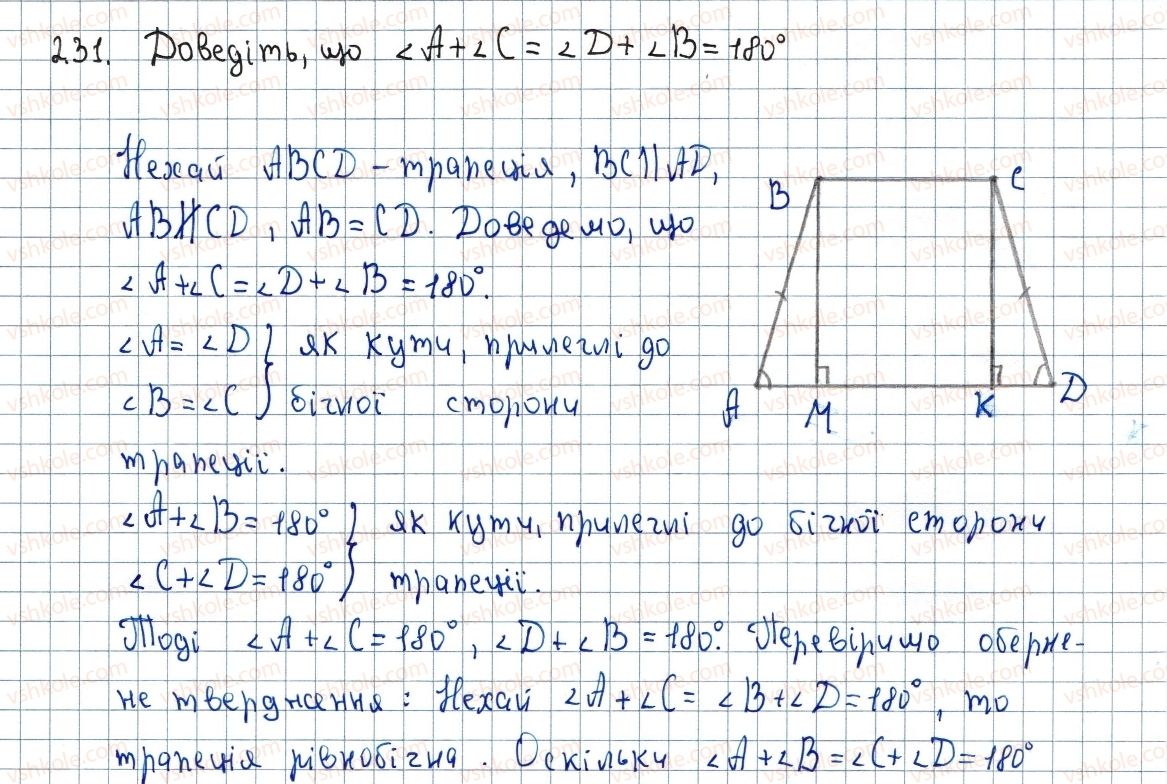 231. Доведіть, що ∠A+∠C = ∠D+∠B = 180°
Нехай ABCD – трапеція, BC||AD,
AB∦CD, AB = CD. Доведемо, що
∠A+∠C = ∠D+∠B = 180°.
∠A = ∠D } як кути, прилеглі до
∠B = ∠C } бічної сторони
трапеції.
∠A+∠B = 180° } як кути, прилеглі до бічної сторони
∠C+∠D = 180° } трапеції.
Тоді ∠A+∠C = 180°, ∠D+∠B = 180°. Перевіримо оберне-
не твердження: Нехай ∠A+∠C = ∠B+∠D = 180°, то
трапеція рівнобічна. Оскільки ∠A+∠B = ∠C+∠D = 180°
B
C
A
M
K
D
vshkole.com